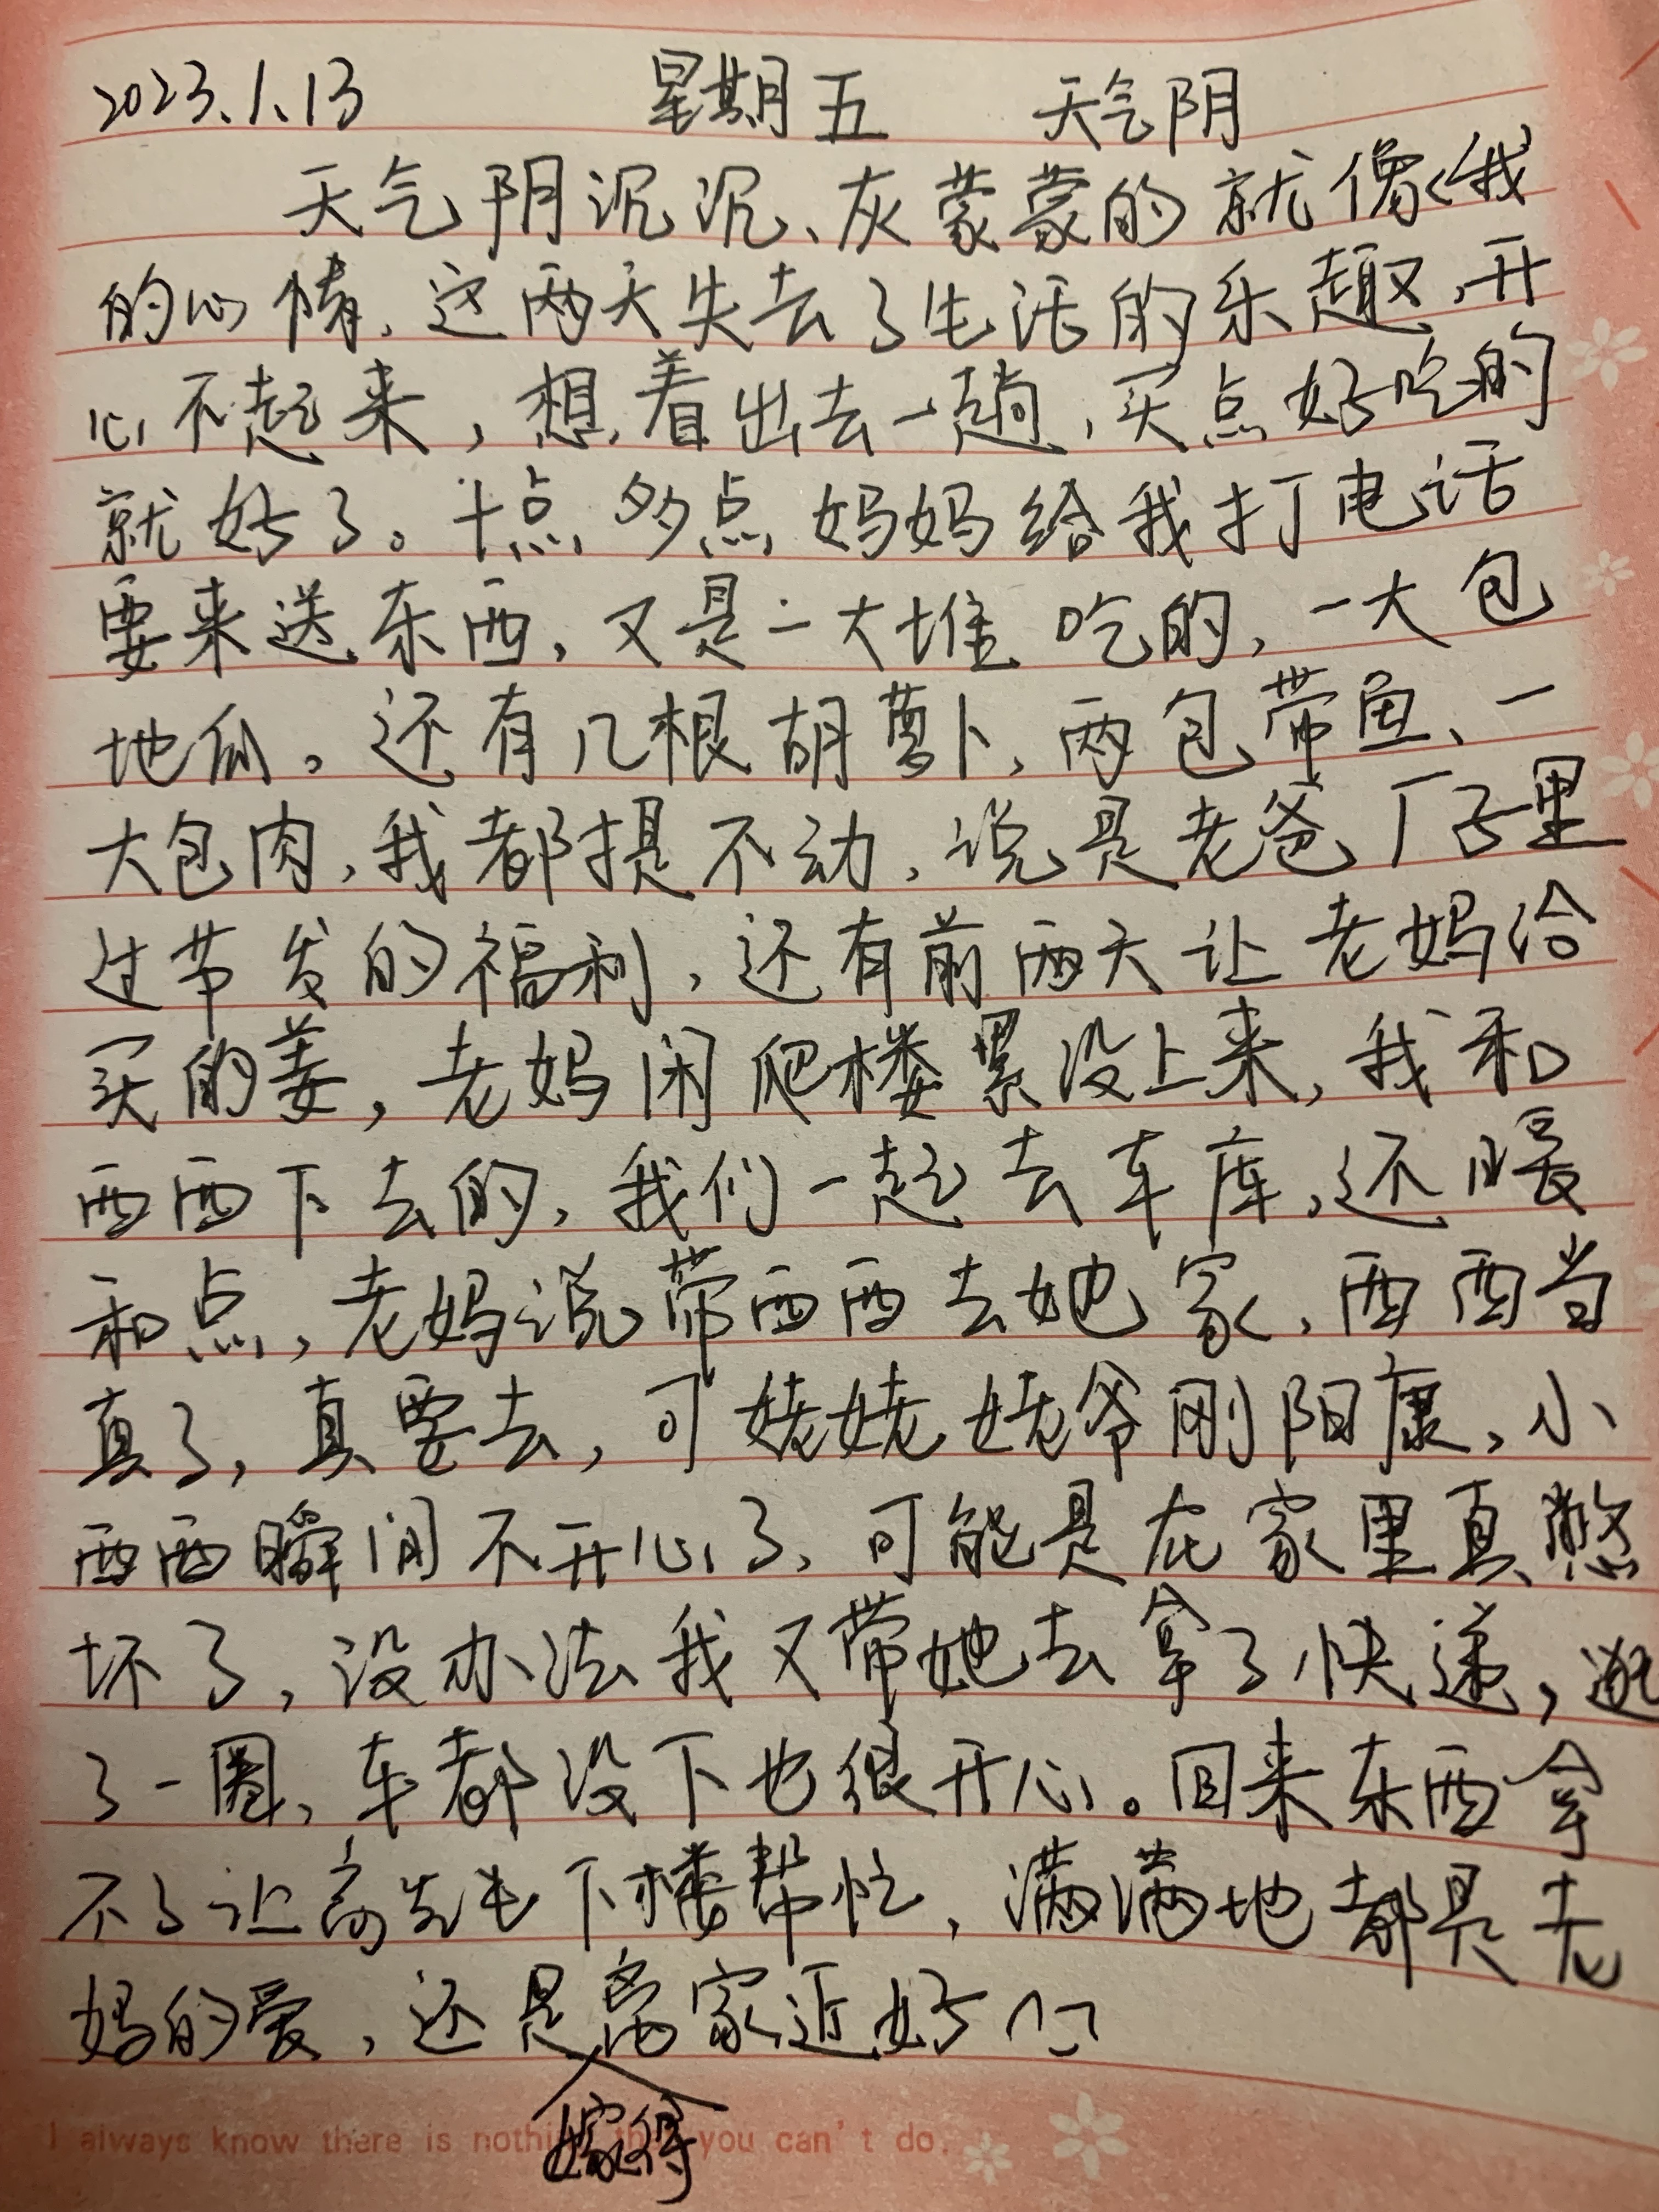 2023.1.13 星期五 天气阴
天气阴沉沉、灰蒙蒙的就像我
的心情,这两天失去了生活的乐趣,开
心不起来,想着出去一趟,买点好吃的
就好了。十点多点妈妈给我打电话
要来送东西,又是一大堆吃的,一大包
地瓜。还有几根胡萝卜,两包带鱼、一
大包肉,我都提不动,说是老爸厂子里
过节发的福利,还有前两天让老妈给
买的姜,老妈闲爬楼累没上来,我和
西西下去的,我们一起去车库,还暖
和点,老妈说带西西去她家,西西当
真了,真要去,可姥姥姥爷刚阳康,小
西西瞬间不开心了,可能是在家里真憋
坏了,没办法我又带她去拿了快递,逛
了一圈,车都没下也很开心。回来东西拿
不了让高先生下楼帮忙,满满地都是老
妈的爱,还是离家近好
嫁得
I always know there is nothing that you can't do.